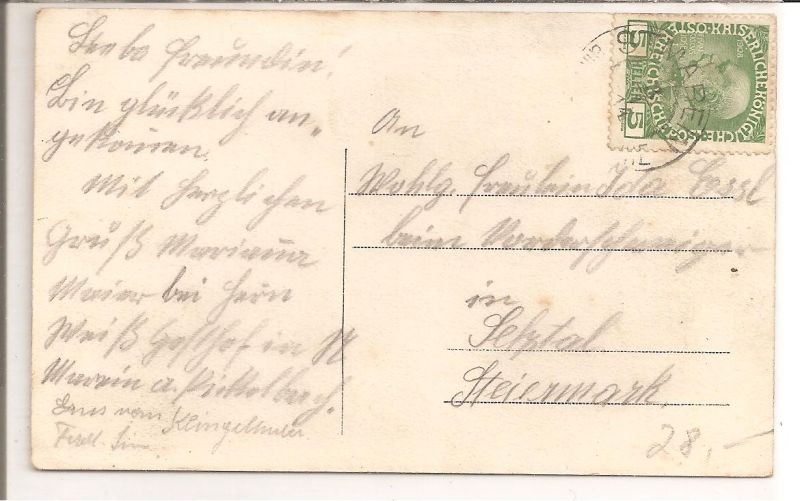 Liebe Freundin!
Bin glücklich an-
gekommen.
Mit herzlichen
Gruß Mariana
Maier bei Herrn
Weiß Gasthof in St
Marein a. Pickelbach.
vom Klingelhuber
Ferd.
An
Wohlg. Freulein Ida Cossl
beim
in
Selztal
Steiermark.
28,-
5 HELLER 5
KAISERLICHE KÖNIGLICHE
1908